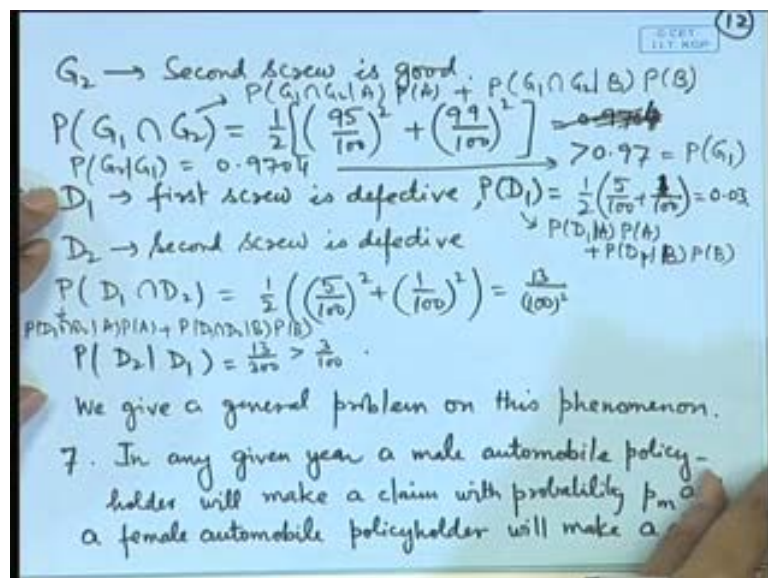 12
G CET
I.I.T. KGP
G₂ → Second screw is good.
P(G₁∩G₂|A) P(A) + P(G₁∩G₂|B) P(B)
P(G₁∩G₂) = 1/2[(95/100)² + (99/100)²] =
P(G₂|G₁) = 0.9704 → >0.97 = P(G₁)
D₁ → first screw is defective, P(D₁) = 1/2(5/100 + 1/100) = 0.03
P(D₁|A) P(A)
D₂ → Second screw is defective
+ P(D₁|B) P(B)
P(D₁∩D₂) = 1/2((5/100)² + (1/100)²) = 13/(100)²
P(D₁∩D₂|A)P(A) + P(D₁∩D₂|B)P(B)
P(D₂|D₁) = 13/300 > 3/100 .
We give a general problem on this phenomenon.
7. In any given year a male automobile policy-
holder will make a claim with probability pₘ
a female automobile policyholder will make a